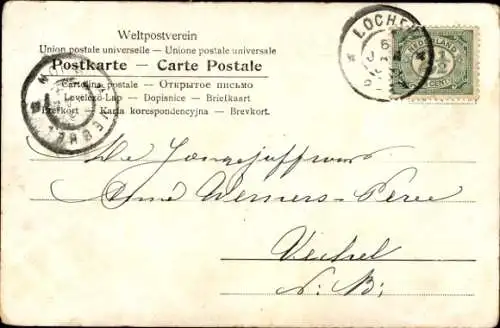 Weltpostverein
Union postale universelle — Unione postale universale
Postkarte — Carte Postale
Cartolina postale — Открытое письмо
Levelező-Lap — Dopisnice — Briefkaart
Brefkort — Karta korespondencyjna — Brevkort.
LOCHEM
NEDERLAND
CENT
De Jongejuffrouw
Werners-
Vechel
N. B.